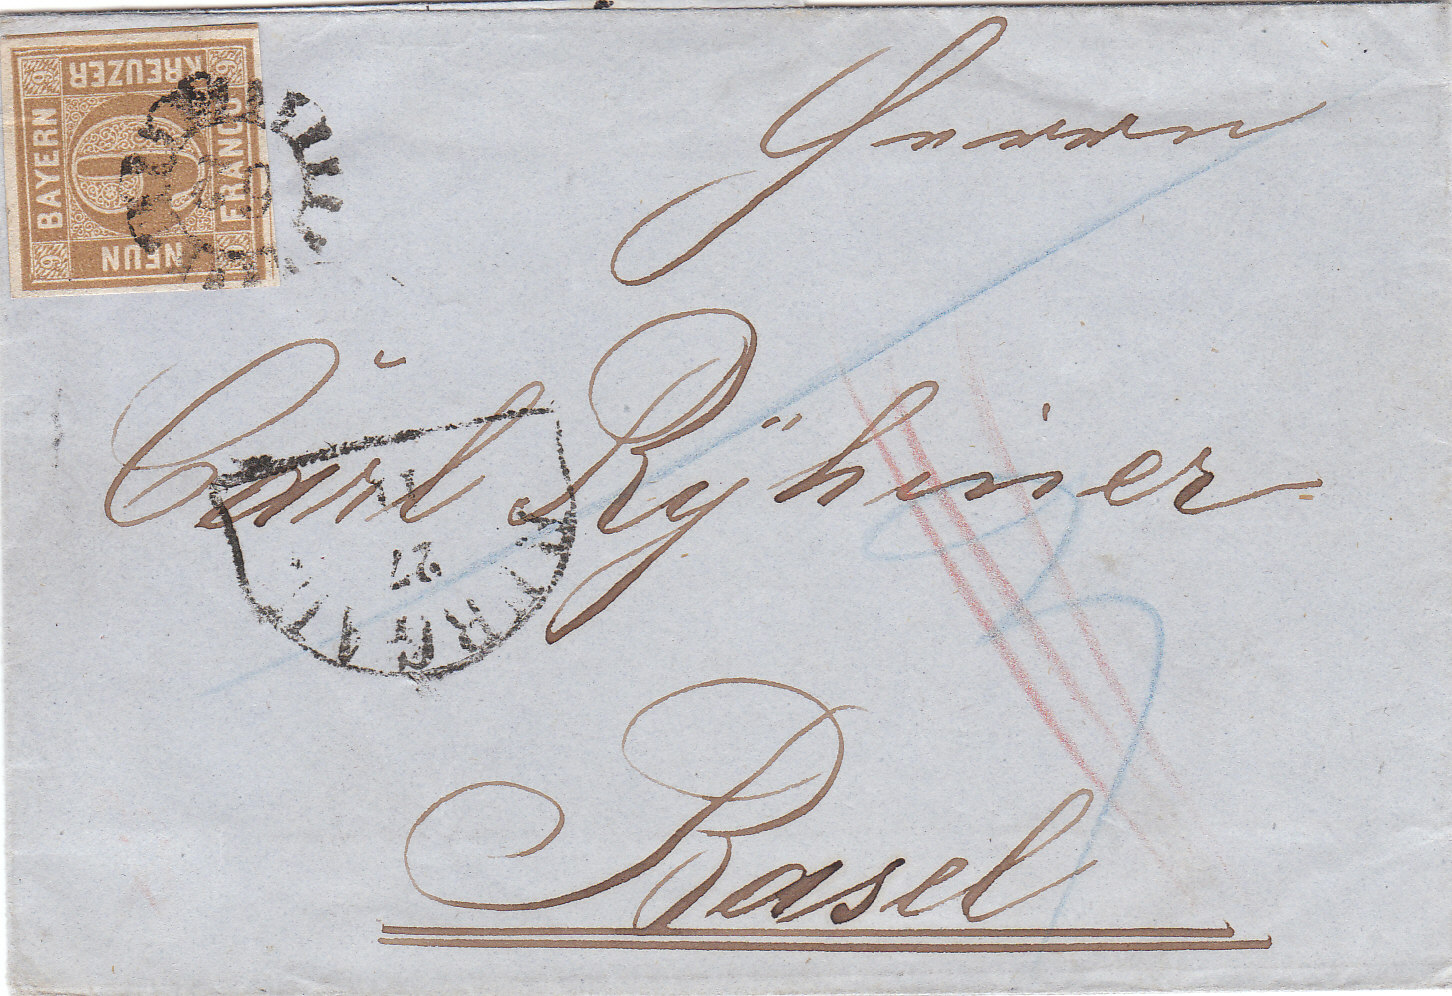 BAYERN
KREUZER
FRANCO
NEUN
9
9
9
9
9
Herrn
Carl Ryhiner
11
27
Basel